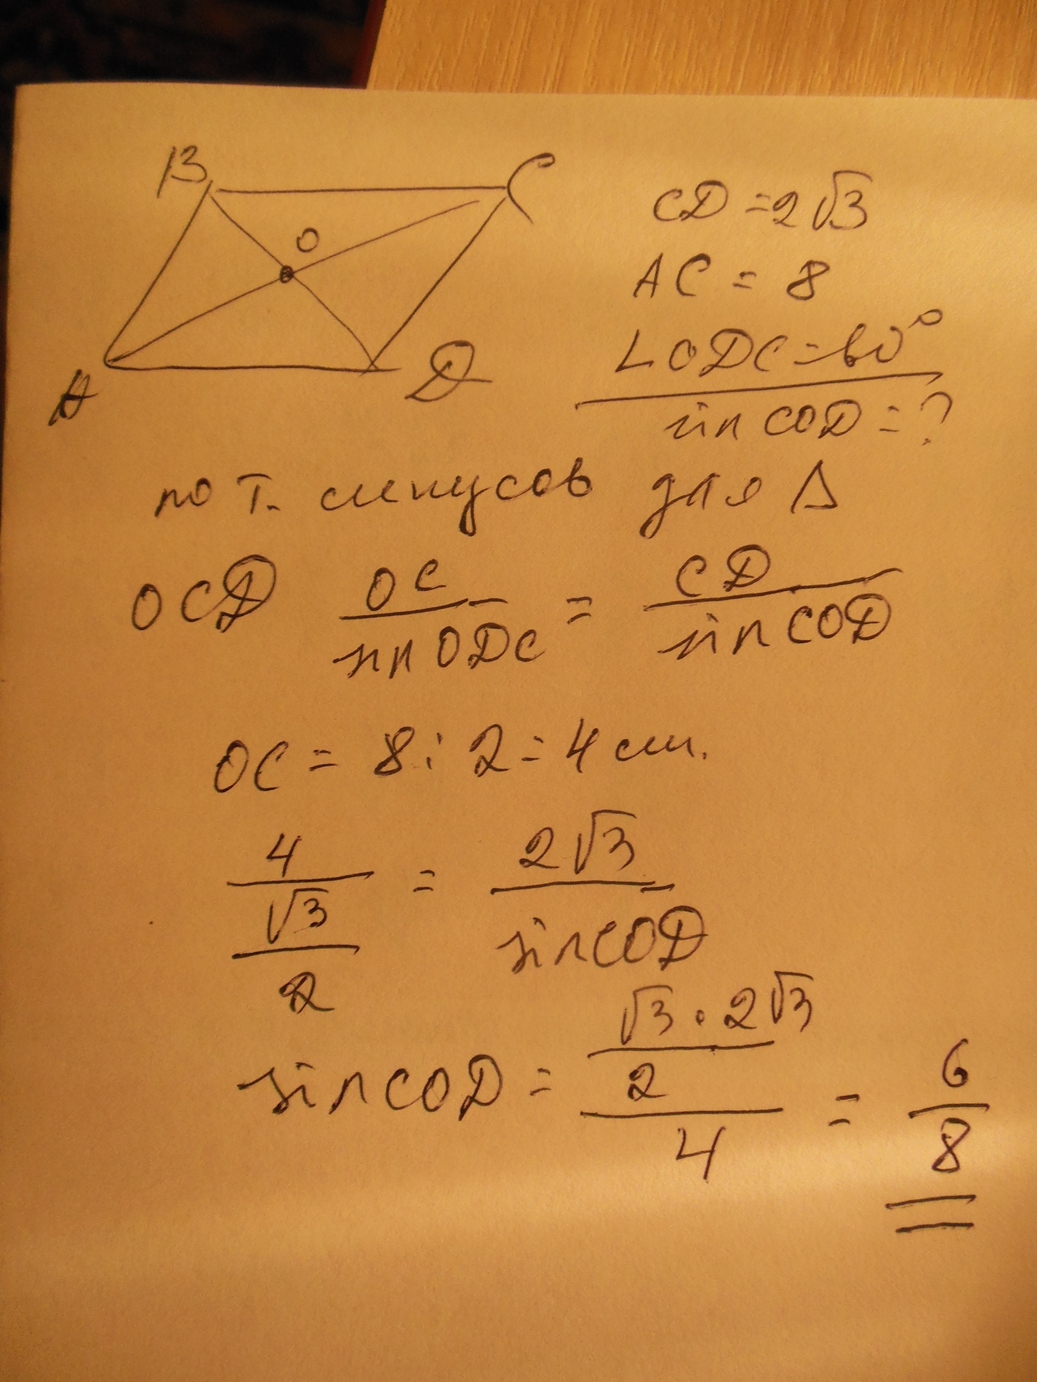 B
C
O
A
D
CD = 2√3
AC = 8
∠ODC = 60°
sin COD = ?
по т. синусов для Δ
OCD OC / sin ODC = CD / sin COD
OC = 8 : 2 = 4 см.
4 / (√3 / 2) = 2√3 / sin COD
sin COD = (√3 · 2√3 / 2) / 4 = 6 / 8